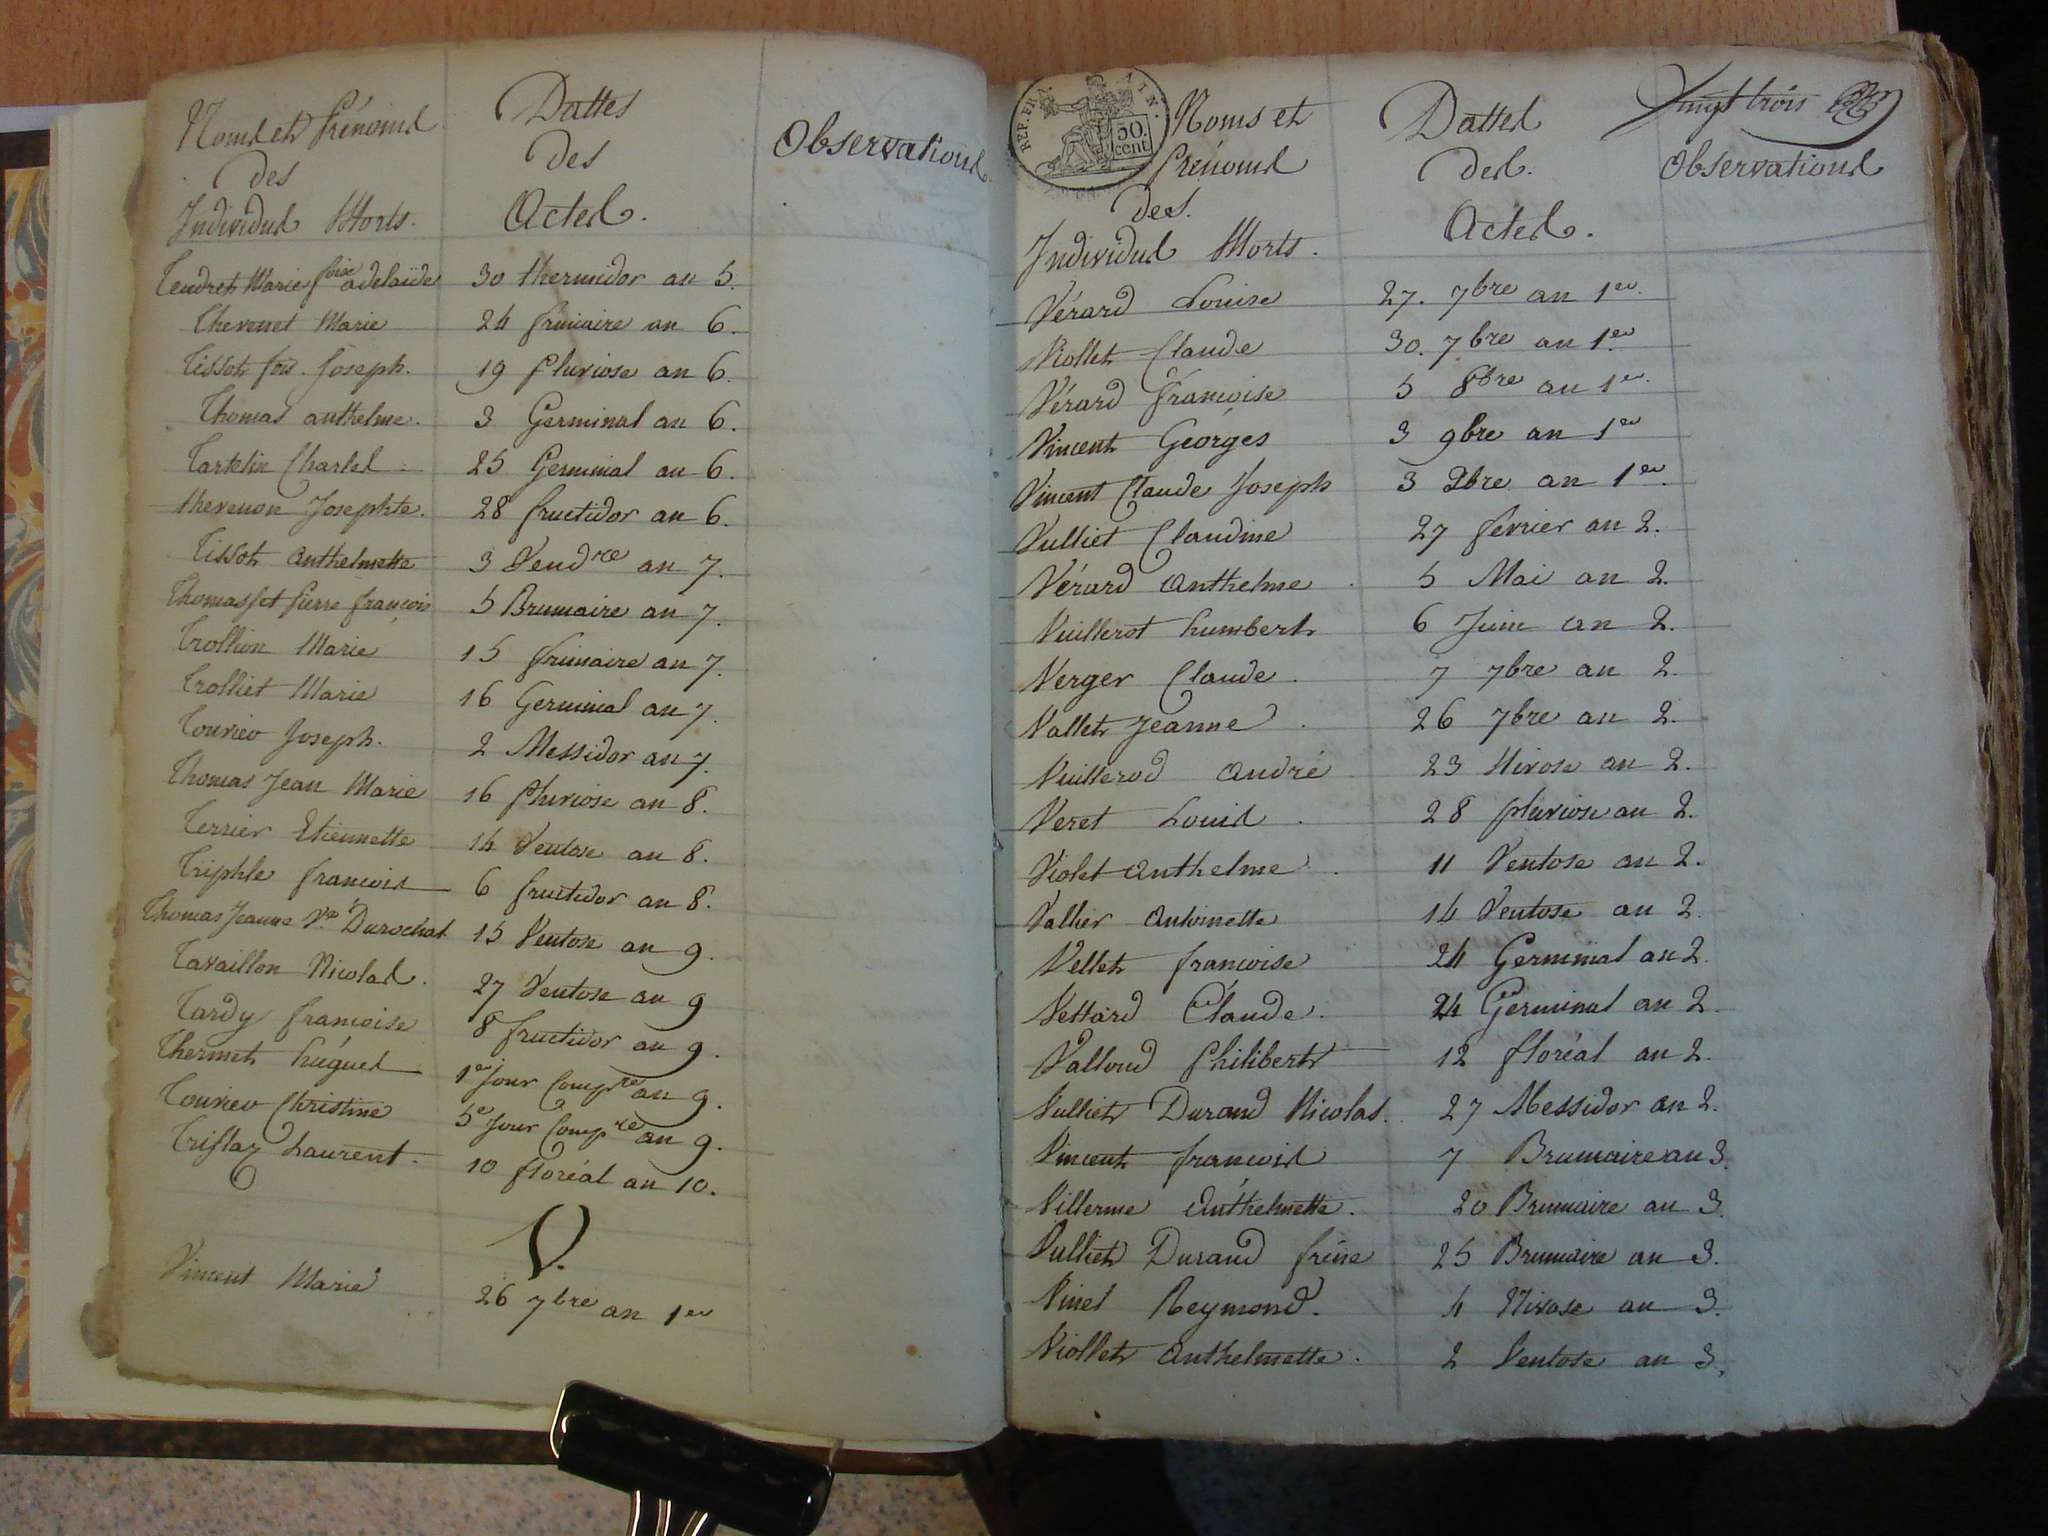 Noms et Prénoms
des
Individus Morts.
Dattes
des
Actes.
Observations
Tendret Marie foise adelaïde 30 thermidor an 5.
Thevenet Marie 24 frimaire an 6.
Tissot fois. Joseph. 19 pluviose an 6.
Thomas anthelme. 3 Germinal an 6.
Tartelin Charles 25 Germinal an 6.
thevenon Josephte. 28 fructidor an 6.
Tissot anthelmette 3 Vendre an 7.
Thomasset pierre françois 5 Brumaire an 7.
Trollion Marie 15 frimaire an 7.
Trolliet Marie 16 Germinal an 7.
Joseph. 2 Messidor an 7.
Thomas Jean Marie 16 pluviose an 8.
Terrier Etiennette 14 Ventose an 8.
Triphle francois 6 fructidor an 8.
Thomas Jeanne Ve. Durochat 15 Ventose an 9.
Tavaillon Nicolas. 27 Ventose an 9
Tardy francoise 8 fructidor an 9.
Thermet hugues 1er Jour Compre an 9.
Christine 5e Jour Compre an 9.
Laurent. 10 floréal an 10.
V.
Vincent Marie 26 7bre an 1er
REP. FRA. 50. cent
Vingt trois
Noms et
Prénoms
des.
Individus Morts.
Dattes
des.
Actes.
Observations
Vérard Louise 27. 7bre an 1er.
Viollet Claude 30. 7bre an 1er.
Vérard francoise 5 8bre an 1er.
Vincent Georges 3 9bre an 1er
Vincent Claude Joseph 3 Xbre an 1er.
Vulliet Claudine 27 fevrier an 2.
Vérard anthelme 5 Mai an 2.
Vuillerot humbert 6 Juin an 2.
Verger Claude. 7 7bre an 2.
Vallet Jeanne. 26 7bre an 2.
Vuillerod andré 23 Nivose an 2.
Veret Louis. 28 pluviose an 2.
Violet anthelme. 11 Ventose an 2.
Vallier antoinette 14 Ventose an 2.
Vellet francoise 24 Germinal an 2.
Vettard Claude. 24 Germinal an 2.
Vallond philibert 12 floréal an 2.
Vulliet Durand Nicolas. 27 Messidor an 2.
Vincent francois 7 Brumaire an 3.
Villerme anthelmette. 20 Brumaire an 3.
Vulliet Durand 25 Brumaire an 3.
Vinet Reymond. 4 Nivose an 3.
Viollet anthelmette. 2 Ventose an 3.